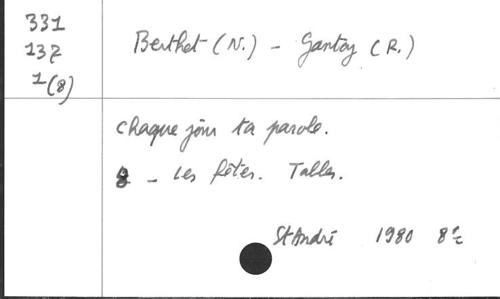 331
137
1(8)
Berthet (N.) - Gantoy (R.)
chaque jour ta parole.
8 - Les fêtes. Tables.
St André 1980 8°